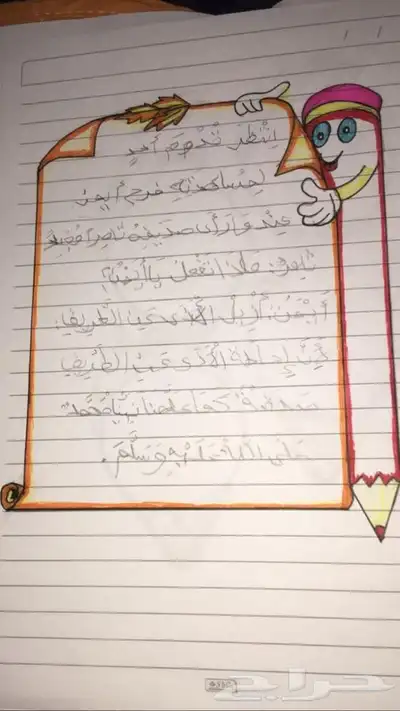 ينتظر قدوم أحدٍ
لمساعدته فرح أيمن
عندما رأى صديقه ناصراً مقبلاً
ناصر: ماذا تفعل يا أيمن؟
أيمن: أزيل الأذى عن الطريق.
إن إماطة الأذى عن الطريق
صدقة كما علمنا نبينا محمد
صلى الله عليه وسلم.
حراج